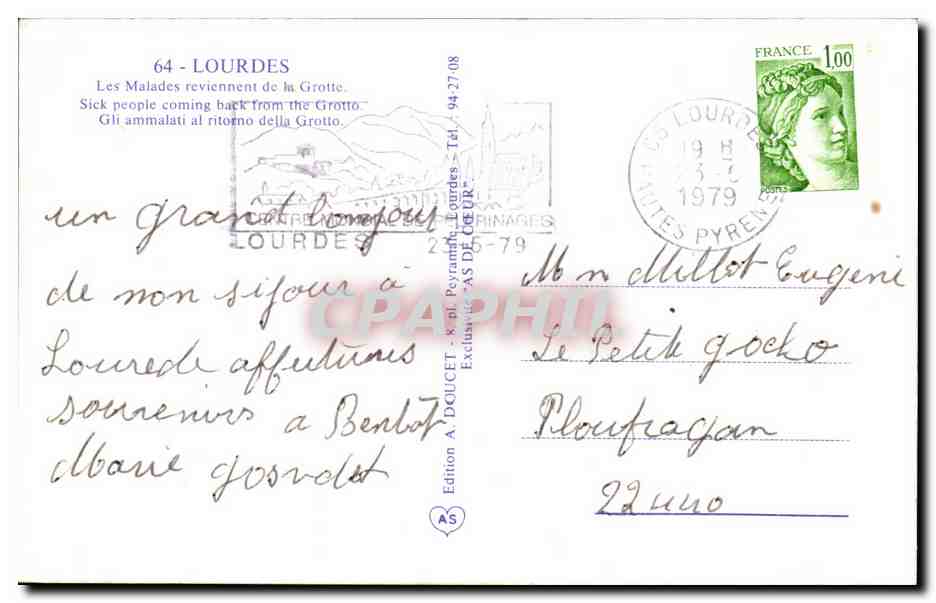 64 - LOURDES
Les Malades reviennent de la Grotte.
Sick people coming back from the Grotto.
Gli ammalati al ritorno della Grotto.
CENTRE MONDIAL DE PELERINAGES
LOURDES 23-5-79
un grand bonjour
de non sijour à
Lourede affutuus
souvenirs a Bentôt
Marie
Edition A. DOUCET - 8, pl. Peyramale, Lourdes - Tél. : 94-27-08
Exclusivité "AS DE CŒUR"
AS
FRANCE 1,00
POSTES
LOURDES
19 H
1979
HAUTES PYRENEES
Mn Millot Eugene
Le Petit gocho
Ploufragan
22
CPAPHIL